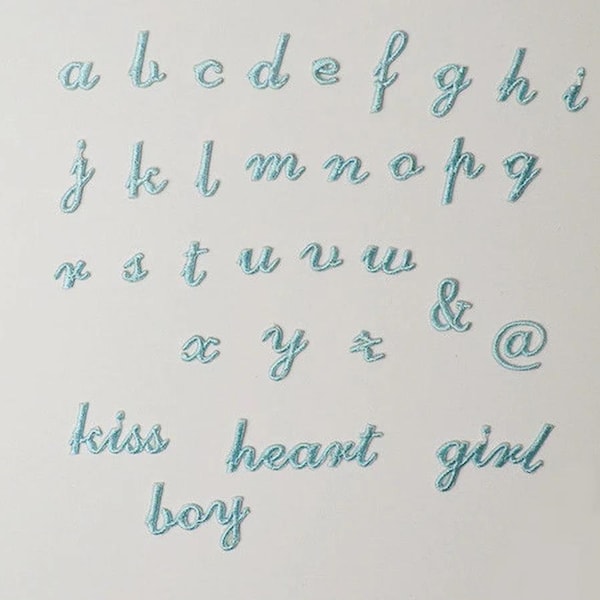 a b c d e f g h i
j k l m n o p q
r s t u v w
x y z & @
kiss heart girl
boy